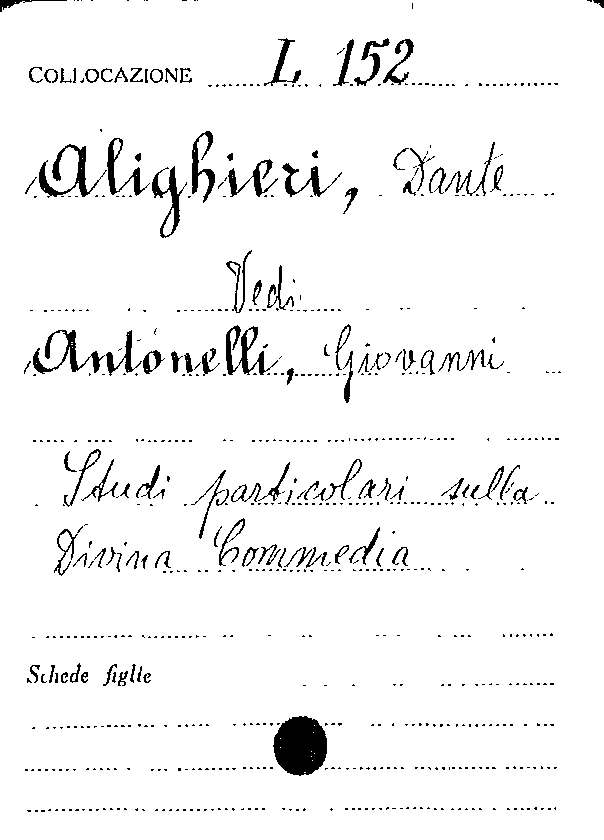 COLLOCAZIONE L 152
Alighieri, Dante
Vedi
Antonelli, Giovanni
Studi particolari sulla
Divina Commedia
Schede figlie